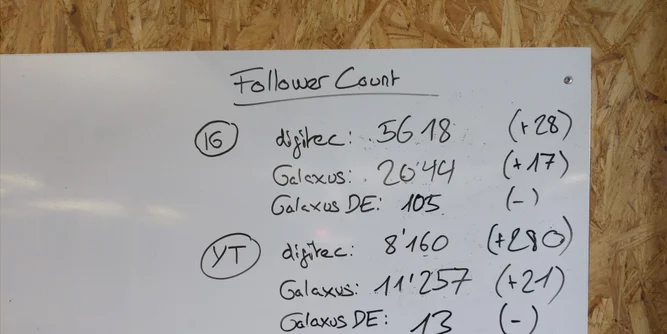 Follower Count
IG digitec: 5618 (+28)
Galaxus: 2044 (+17)
Galaxus DE: 105 (-)
YT digitec: 8'160 (+280)
Galaxus: 11'257 (+21)
Galaxus DE: 13 (-)